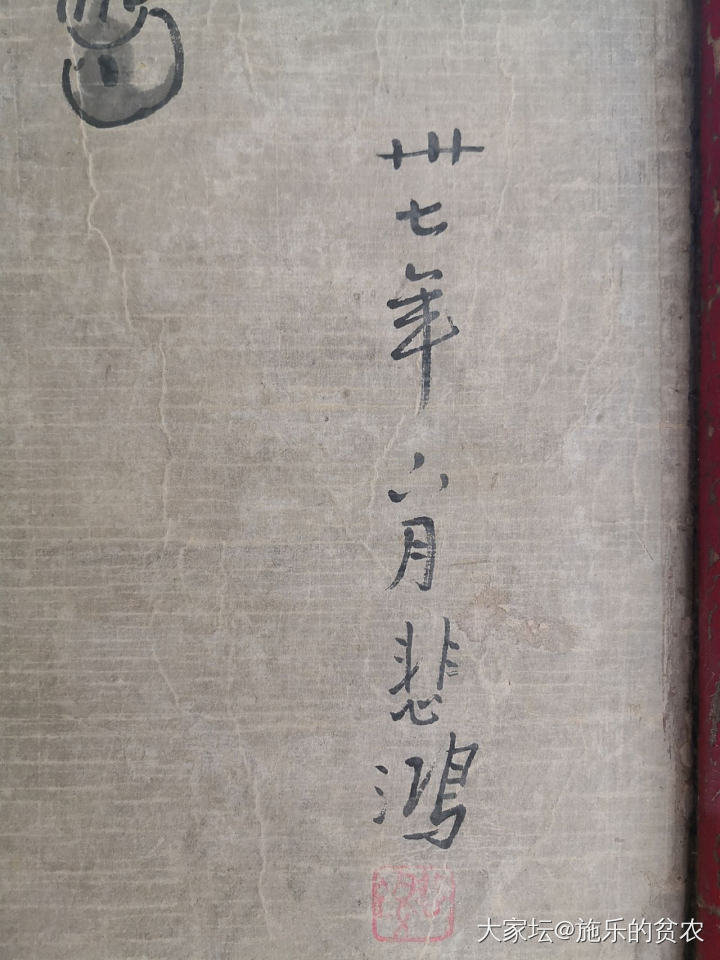 卅七年六月悲鸿
大家坛@施乐的贫农